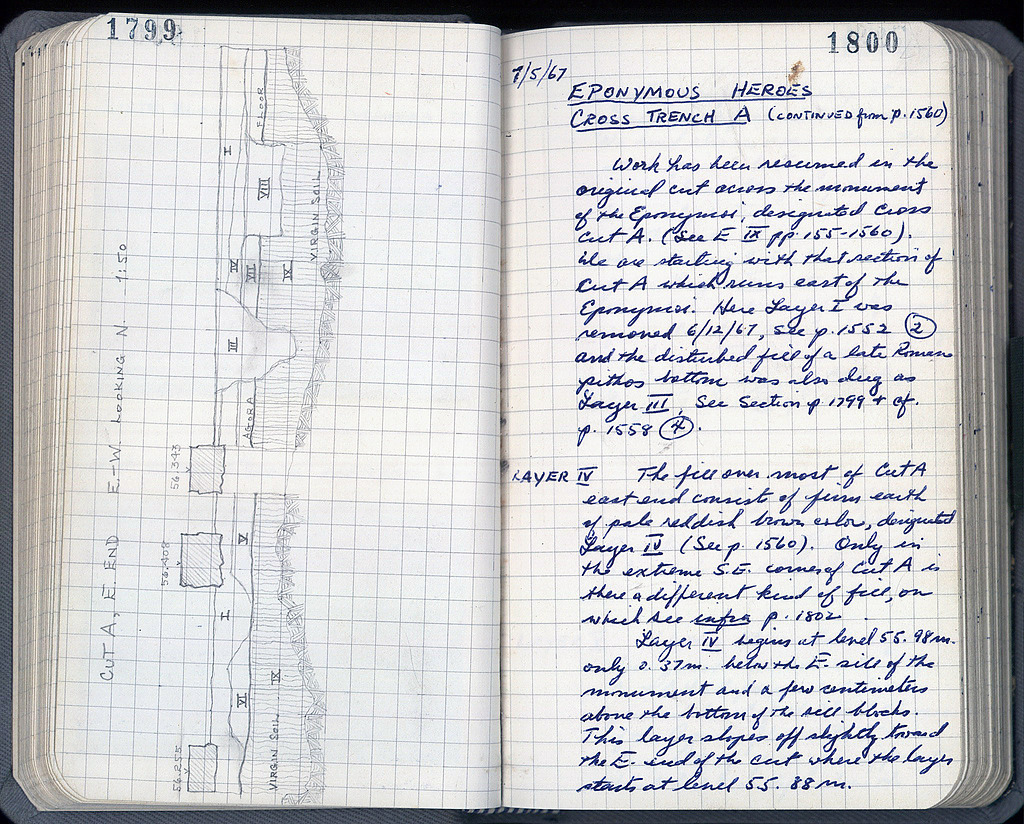 1799
CUT A, E. END E.-W. LOOKING N. 1:50
56.255
56.408
56.343
I
VI
V
IX
VIRGIN SOIL
AGORA
III
IV
VII
IX
VIRGIN SOIL
I
VIII
FLOOR
1800
7/5/67
EPONYMOUS HEROES
CROSS TRENCH A (CONTINUED from p. 1560)
Work has been resumed in the
original cut across the monument
of the Eponymoi, designated Cross
Cut A. (See E IX pp. 155-1560).
We are starting with that section of
Cut A which runs east of the
Eponymoi. Here Layer I was
removed 6/12/67, see p. 1552 (2)
and the disturbed fill of a late Roman
pithos bottom was also dug as
Layer III, See Section p 1799 + cf.
p. 1558 (4).
LAYER IV The fill over most of Cut A
east end consists of firm earth
of pale reddish brown color, designated
Layer IV (See p. 1560). Only in
the extreme S.E. corner of Cut A is
there a different kind of fill, on
which see infra p. 1802
Layer IV begins at level 55.98 m.
only 0.37 m. below the E. sill of the
monument and a few centimeters
above the bottom of the sill blocks.
This layer slopes off slightly toward
the E. end of the cut where the layer
starts at level 55.88 m.